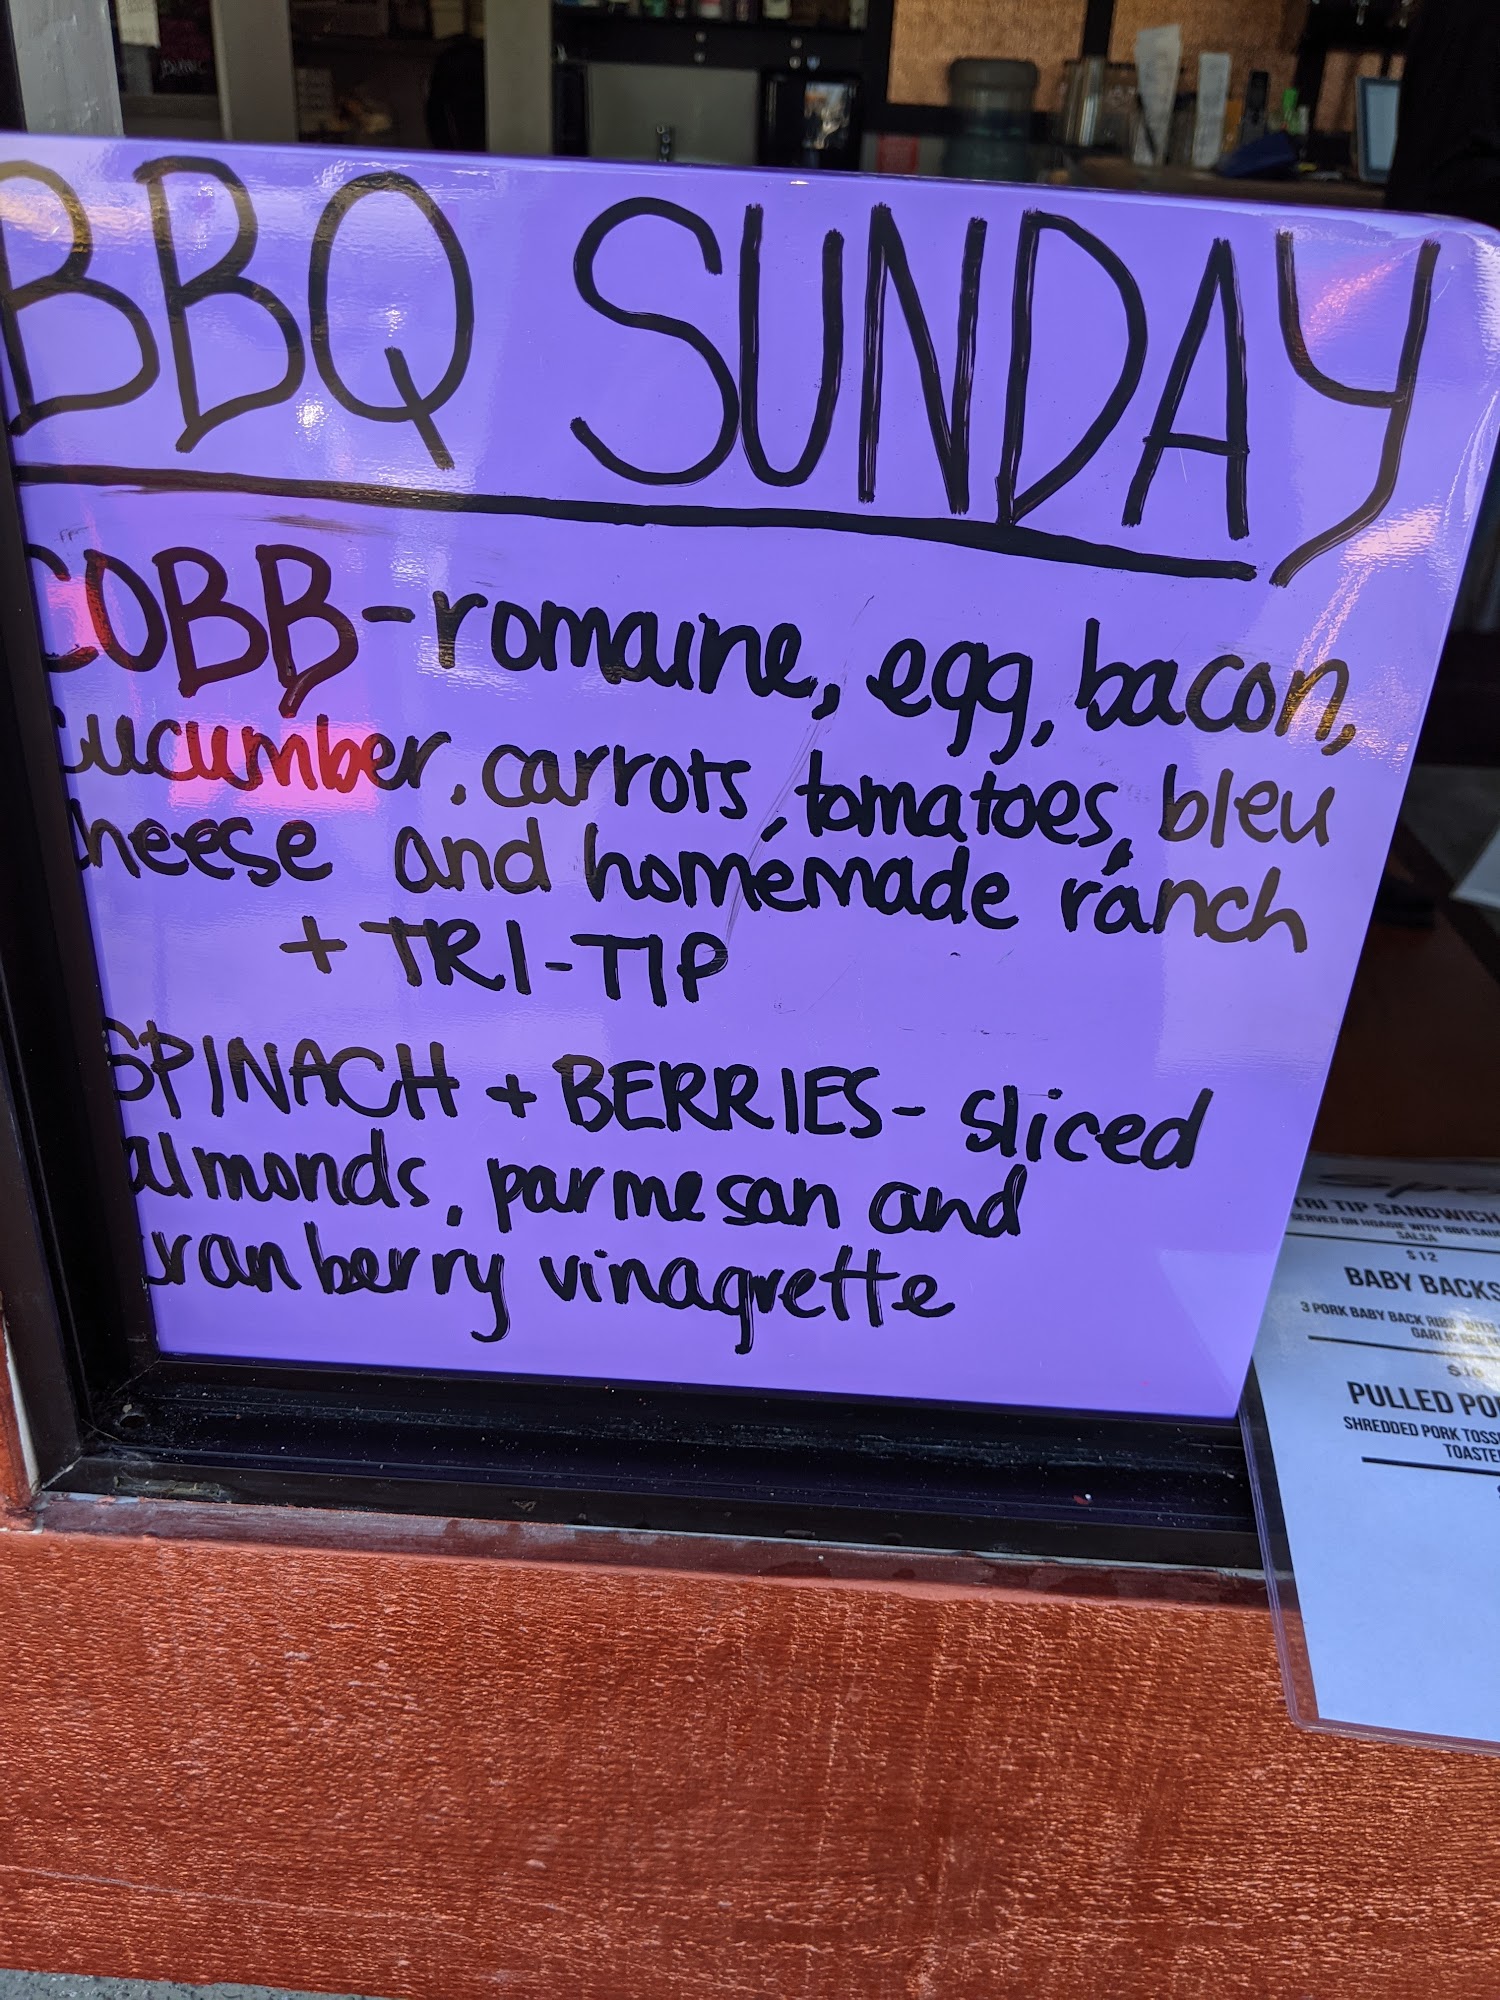 BBQ SUNDAY
COBB-romaine, egg, bacon,
cucumber, carrots, tomatoes, bleu
cheese and homemade ranch
+ TRI-TIP
SPINACH + BERRIES- sliced
almonds, parmesan and
cranberry vinagrette
TRI TIP SANDWICH
SERVED ON HOAGIE WITH BBQ
SALSA
$12
BABY BACKS
3 PORK BABY BACK RIBS WITH
PULLED
SHREDDED PORK